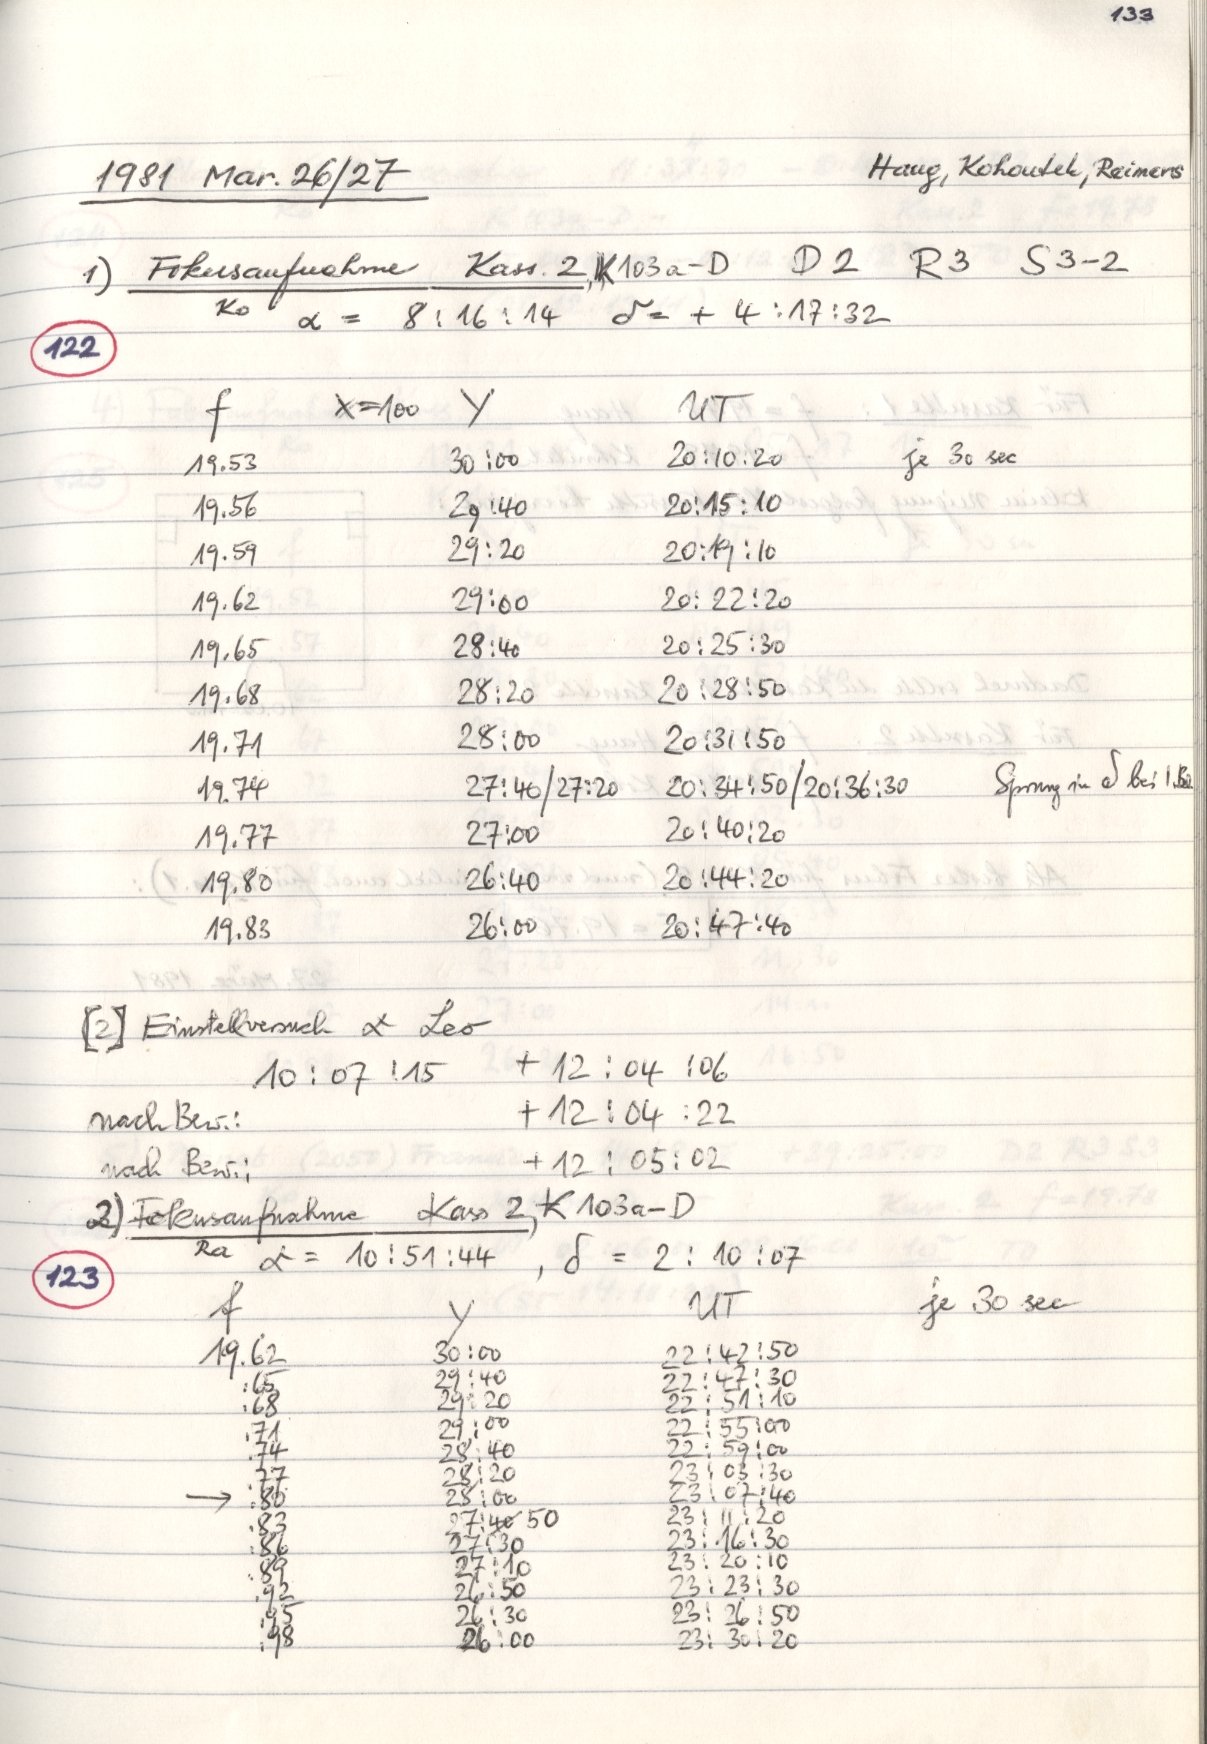 133
1981 Mar. 26/27 Haug, Kohoutek, Reimers
1) Fokusaufnahme Kass. 2, K103a-D D2 R3 S3-2
Ko α = 8:16:14 δ = + 4:17:32
122
f X=100 Y UT
19.53 30:00 20:10:20 je 30 sec
19.56 29:40 20:15:10
19.59 29:20 20:19:10
19.62 29:00 20:22:20
19.65 28:40 20:25:30
19.68 28:20 20:28:50
19.71 28:00 20:31:50
19.74 27:40/27:20 20:34:50/20:36:30 Sprung in δ bei 1.
19.77 27:00 20:40:20
19.80 26:40 20:44:20
19.83 26:00 20:47:40
[2] Einstellversuch α Leo
10:07:15 +12:04:06
nach Bew.: +12:04:22
nach Bew.: +12:05:02
2) Fokusaufnahme Kass 2, K103a-D
Ra α = 10:51:44, δ = 2:10:07
123
f Y UT je 30 sec
19.62 30:00 22:42:50
:65 29:40 22:47:30
:68 29:20 22:51:10
:71 29:00 22:55:00
:74 28:40 22:59:00
:77 28:20 23:03:30
→ :80 28:00 23:07:40
:83 27:40 50 23:11:20
:86 27:30 23:16:30
:89 27:10 23:20:10
:92 26:50 23:23:30
:95 26:30 23:26:50
:98 26:00 23:30:20